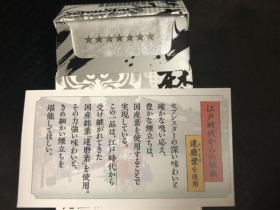 江戸時代からの伝承
達磨葉を使用
セブンスターの深い味わいと
確かな吸い応え、
豊かな煙立ちは、
国産葉を使用することで
実現している。
この一品は、江戸時代から
受け継がれてきた
国産銘葉「達磨葉」を使用。
その力強い味わいと、
きめ細かい煙立ちを
堪能してほしい。